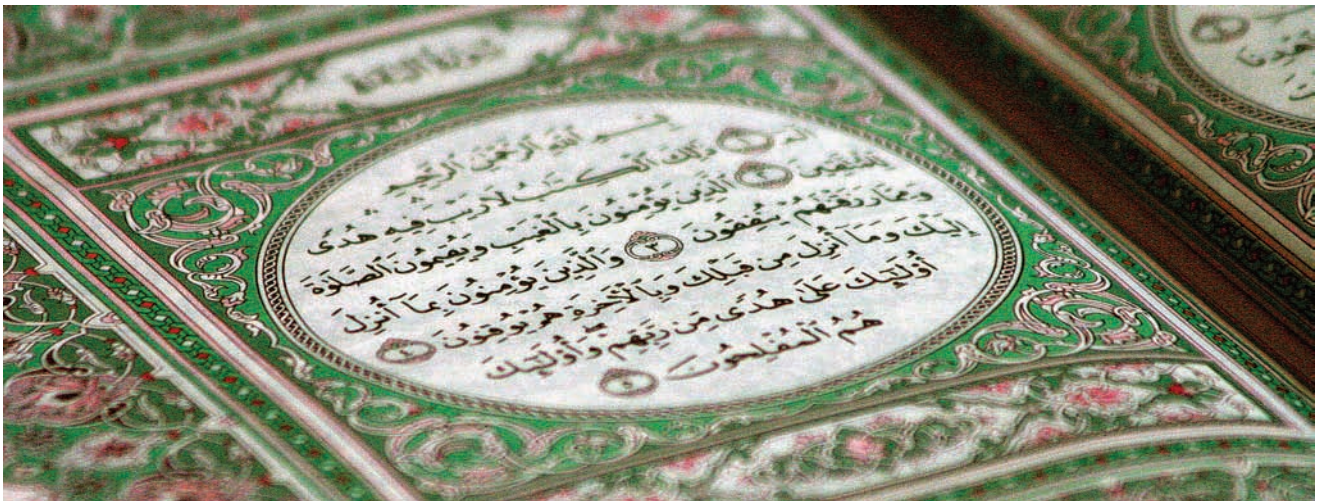 سورة البقرة
بِسْمِ اللَّهِ الرَّحْمَٰنِ الرَّحِيمِ
الٓمٓ ١ ذَٰلِكَ الْكِتَٰبُ لَا رَيْبَ فِيهِ هُدًى
لِّلْمُتَّقِينَ ٢ الَّذِينَ يُؤْمِنُونَ بِالْغَيْبِ وَيُقِيمُونَ الصَّلَوٰةَ
وَمِمَّا رَزَقْنَٰهُمْ يُنفِقُونَ ٣ وَالَّذِينَ يُؤْمِنُونَ بِمَآ أُنزِلَ
إِلَيْكَ وَمَآ أُنزِلَ مِن قَبْلِكَ وَبِالْأَخِرَةِ هُمْ يُوقِنُونَ ٤
أُو۟لَٰٓئِكَ عَلَىٰ هُدًى مِّن رَّبِّهِمْ وَأُو۟لَٰٓئِكَ
هُمُ الْمُفْلِحُونَ ٥